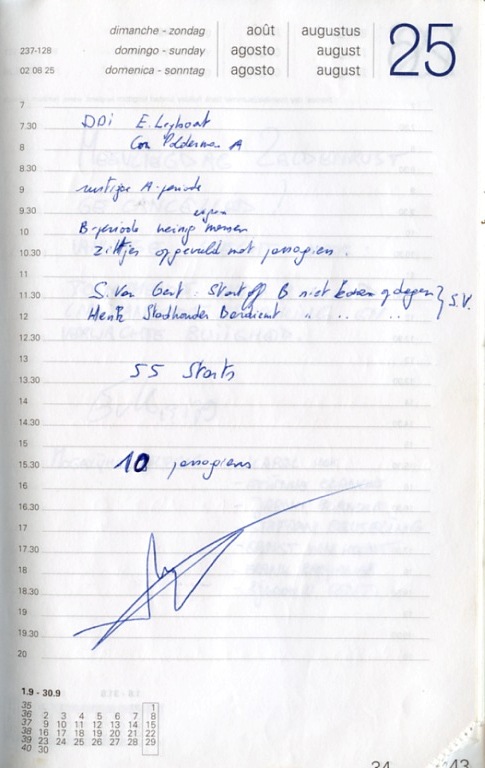 dimanche - zondag août augustus
237-128 domingo - sunday agosto august
02 08 25 domenica - sonntag agosto august
25
7
7.30 DDI E. Leyboat
8 Cor Polderman A
8.30
9 rustige A-periode
9.30 eigen
10 B-periode weinig mensen
10.30 zitjes opgevuld met passagiers.
11
11.30 S. van Gent : Start off B niet komen opdagen } S.V.
12 Henk Stadhouder Bardienst " " "
12.30
13
13.30 55 Starts
14
14.30
15
15.30 10 passagiers
16
16.30
17
17.30
18
18.30
19
19.30
20
1.9 - 30.9
35 1
36 2 3 4 5 6 7 8
37 9 10 11 12 13 14 15
38 16 17 18 19 20 21 22
39 23 24 25 26 27 28 29
40 30